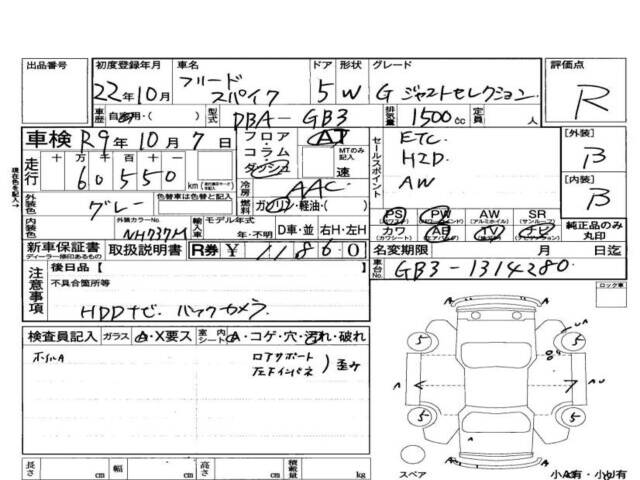 出品番号 初度登録年月 車名 ドア 形状 グレード 評価点
22年10月 フリード スパイク 5 W G ジャストセレクション R
車歴 自家用・( ) 型式 DBA-GB3 排気量 1500cc 定員 人
車検 R9年10月7日 フロア・コラム・ダッシュ AT MTのみ記入 速 セールスポイント ETC [外装] B
走行 十 万 千 百 十 60550 km HID [内装] B
冷房 AAC AW
外装色 グレー 色替車は色替と記入 燃料 ガソリン・軽油・( )
PS PW AW (アルミホイル) SR (サンルーフ)
外装カラーNo. NH737M 輸入車 モデル年式 年・不明 D車・並 右H・左H カワ (カワシート) AB (エアバッグ) TV ナビ 純正品のみ丸印
新車保証書 ディーラー捺印あるもの 取扱説明書 R券 ¥11860 名変期限 月 日迄
注意事項 後日品 [ ] 車台No. GB3-1314280
不具合箇所等 ロック車
HDDナビ. バックカメラ
現在色を記入→
検査員記入 ガラス A・X要ス 室内シート A・コゲ・穴・汚れ・破れ
ホイルA ロアサポート 左下インパネ )歪み
A A
5 5 A U
A A U
5 5
A
長さ cm 幅 cm 高さ cm 積載量 kg スペア 小A有・小U有